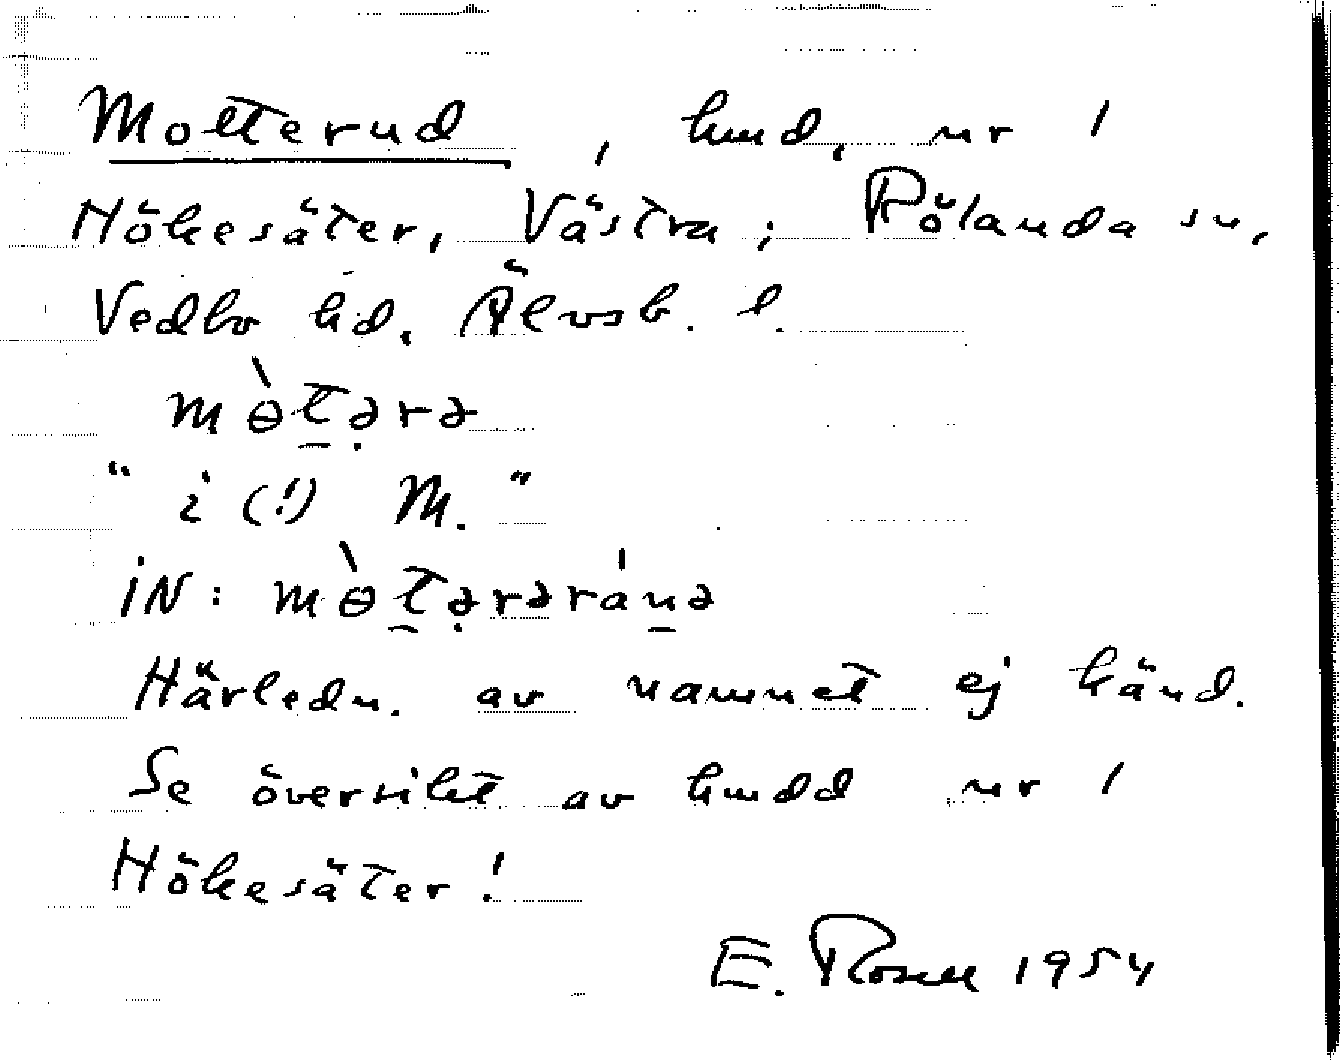 Motterud, hmd, nr 1
Hökesäter, Västra; Rölanda sn,
Vedbo hd, Älvsb. l.
mɵ̀t̠ə̣rə
"i (!) M."
iN: mɵ̀t̠ə̣rərán̠ə
Härledn. av namnet ej känd.
Se översikt av hmdd nr 1
Hökesäter!
E. Rosell 1954